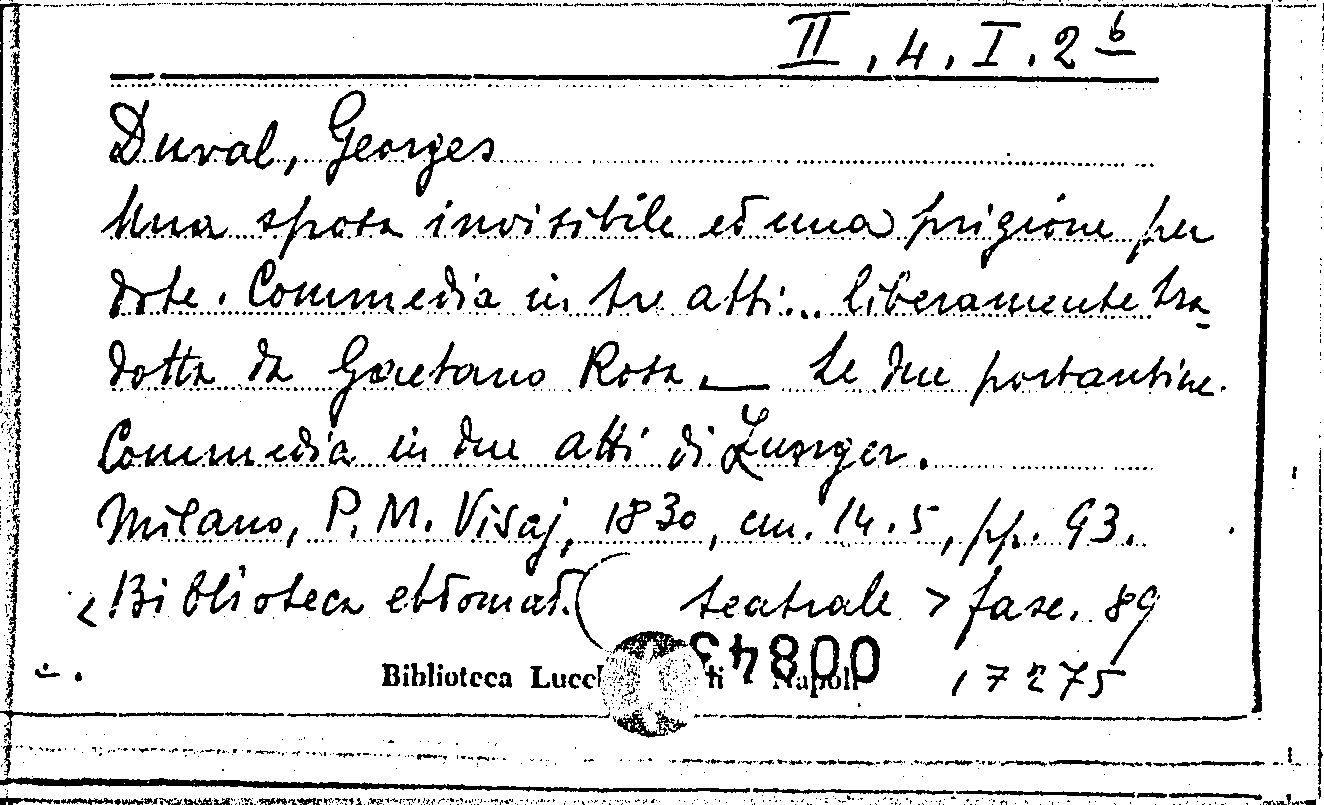 II. 4. I. 2 b
Duval, Georges
Una sposa invisibile ed una prigione per
dote. Commedia in tre atti... liberamente tra-
dotta da Gaetano Rosa. — Le due portantine.
Commedia in due atti di
Milano, P. M. Visaj, 1830, cm. 14.5, pp. 93.
<Biblioteca ebdomad. teatrale> fasc. 89
Biblioteca Lucch ti - Napoli
00843
17275